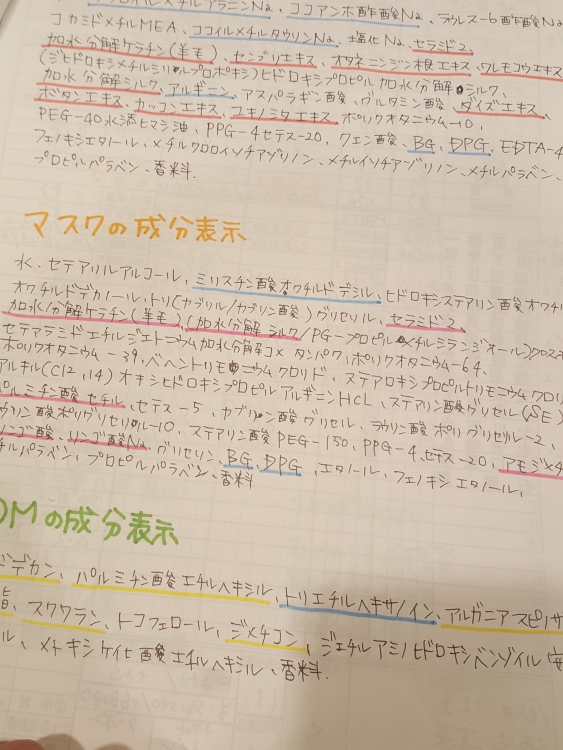 メチルアラニンNa、ココアンホ酢酸Na、ラウレス-6酢酸Na
コカミドメチルMEA、ココイルメチルタウリンNa、塩化Na、セラミド2、
加水分解ケラチン(羊毛)、センブリエキス、オタネニンジン根エキス、ワレモコウエキス
(ジヒドロキシメチルシリルプロポキシ)ヒドロキシプロピル加水分解シルク、
加水分解シルク、アルギニン、アスパラギン酸、グルタミン酸、ダイズエキス、
ボタンエキス、カッコンエキス、ユキノシタエキス ポリクオタニウム-10、
PEG-40水添ヒマシ油、PPG-4セテス-20、クエン酸、BG、DPG、EDTA-4
フェノキシエタノール、メチルクロロイソチアゾリノン、メチルイソチアゾリノン、メチルパラベン、
プロピルパラベン、香料
マスクの成分表示
水、セテアリルアルコール、ミリスチン酸オクチルドデシル、ヒドロキシステアリン酸オクチ
オクチルドデカノール、トリ(カプリル/カプリン酸)グリセリル、セラミド2、
加水分解ケラチン(羊毛)、(加水分解シルク/PG-プロピルメチルシランジオール)クロス
セテアラミドエチルジエトニウム加水分解コメタンパク、ポリクオタニウム-64、
ポリクオタニウム-39、ベヘントリモニウムクロリド、ステアロキシプロピルトリモニウムクロリ
アルキル(C12,14)オキシヒドロキシプロピルアルギニンHCL、ステアリン酸グリセリル(SE)
パルミチン酸セチル、セテス-5、カプリン酸グリセリル、ラウリン酸ポリグリセリル-2、
ウリン酸ポリグリセリル-10、ステアリン酸PEG-150、PPG-4セテス-20、アモジメチ
リンゴ酸、リンゴ酸Na、グリセリン、BG、DPG、エタノール、フェノキシエタノール、
チルパラベン、プロピルパラベン、香料
の成分表示
ドデカン、パルミチン酸エチルヘキシル、トリエチルヘキサノイン、アルガニアスピノサ
脂、スクワラン、トコフェロール、ジメチコン、ジエチルアミノヒドロキシベンゾイル(安
ル、メトキシケイヒ酸エチルヘキシル、香料